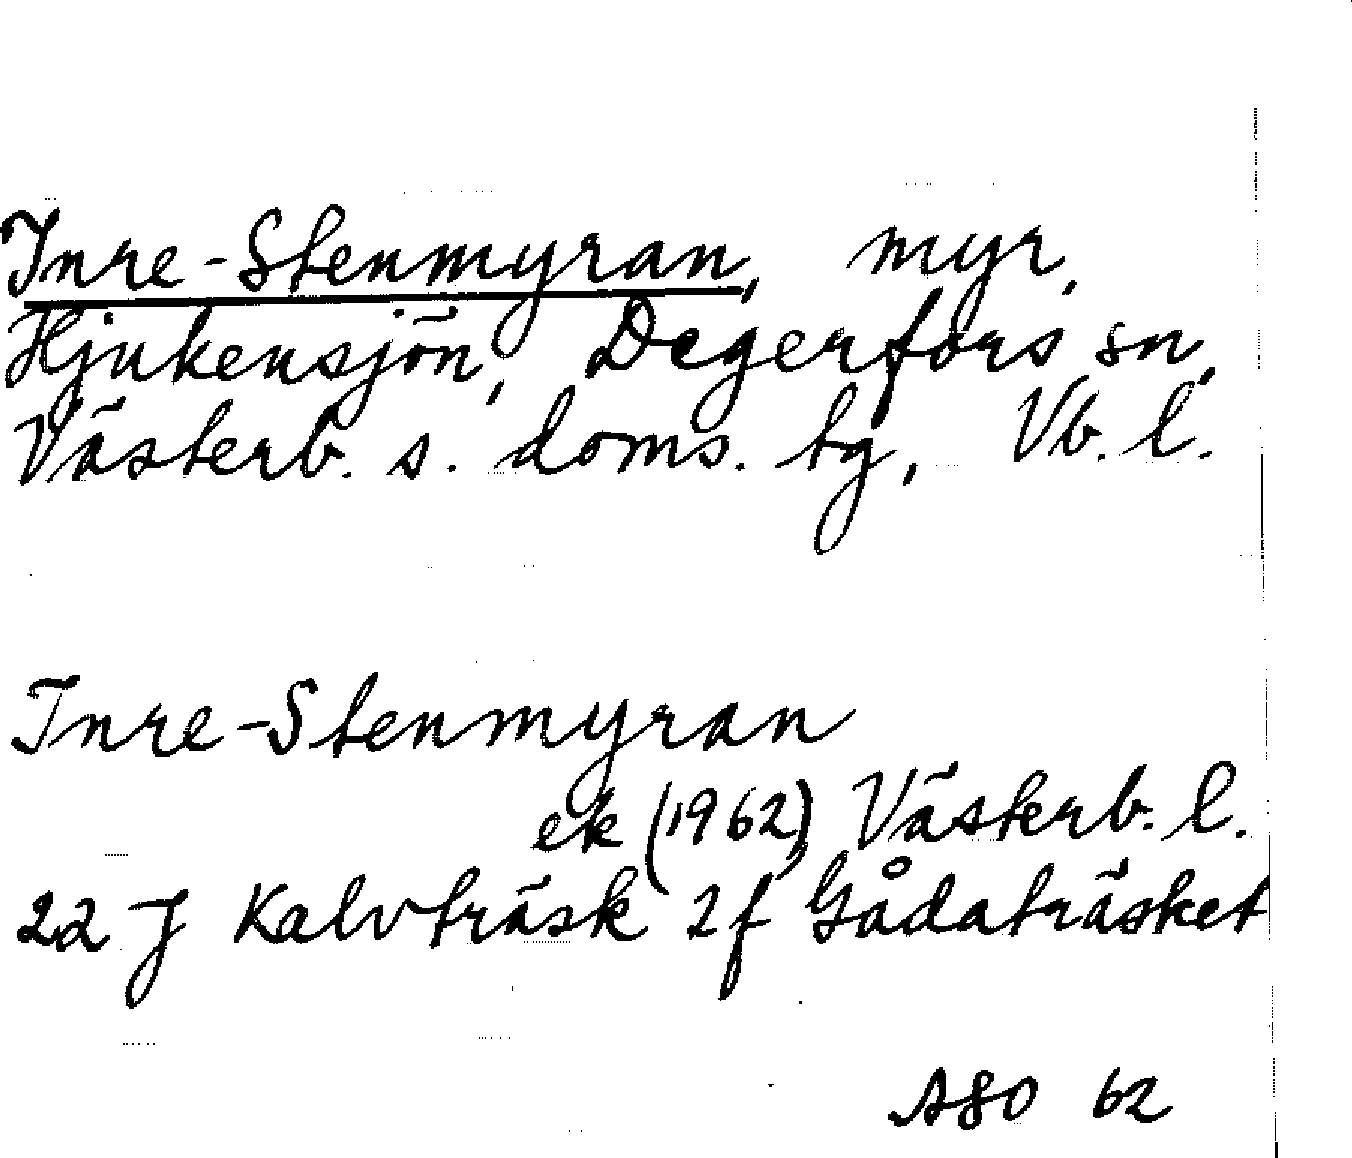 Inre-Stenmyran, myr,
Hjukensjön, Degerfors sn,
Västerb. s. doms. tg, Vb. l.
Inre-Stenmyran
ek (1962) Västerb. l.
22 J Kalvträsk 2f Gådaträsket
ASO 62